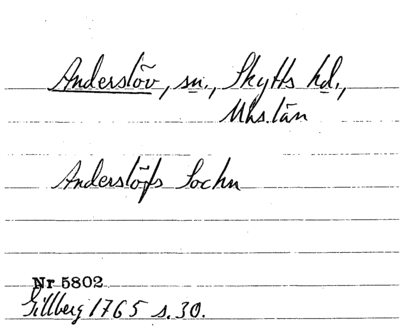 Anderslöv, sn., Skytts hd.,
Mhs. län
Anderslöfs Sochn
Nr 5802
Gillberg 1765 s. 30.